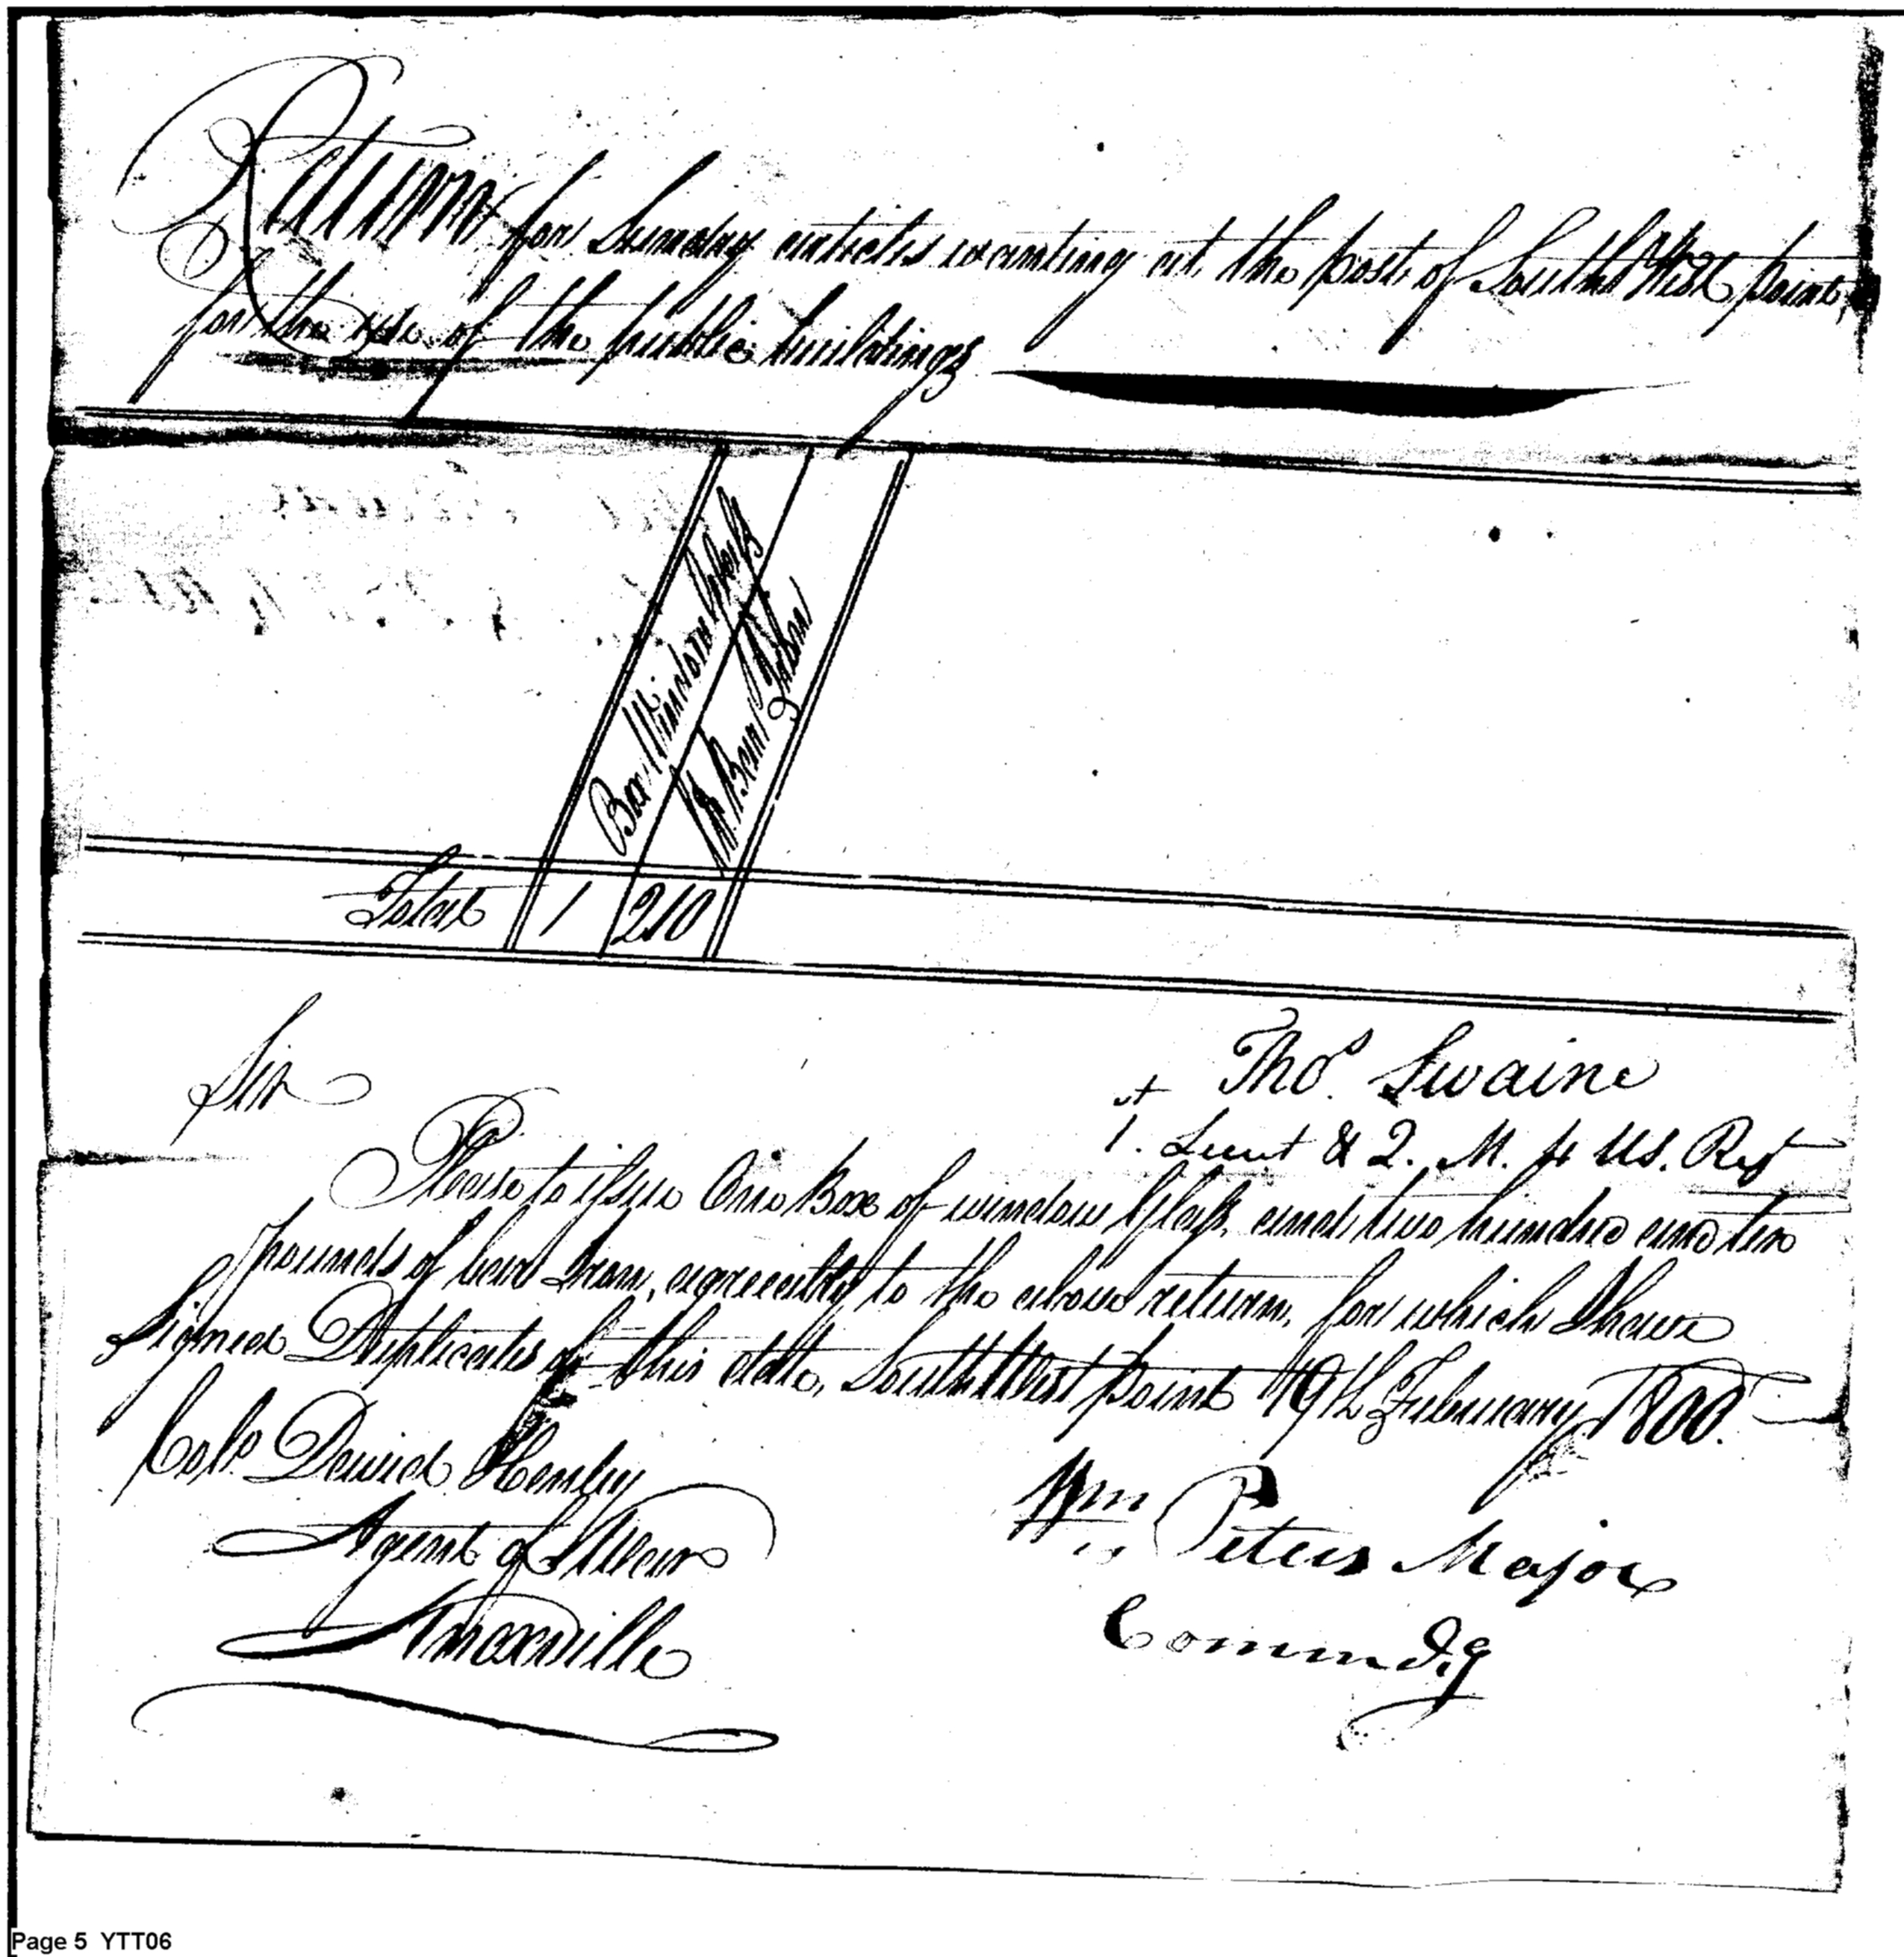 Return for Sundry articles wanting at the post of South West point,
for the use of the public buildings
Box Window Glass
lb Bar Iron
Total 1 210
Thos. Swaine
1.st Lieut & Q. M. 4 US. Regt
Sir
Please to issue One Box of window Glass, and two hundred and ten
pounds of bar Iron, agreeably to the above return, for which I have
Signed Duplicates of this date, South West point 19th February 1800.
Colo. David Henley
Agent of War
Knoxville
Wm Peters Major
Commdg
Page 5 YTT06